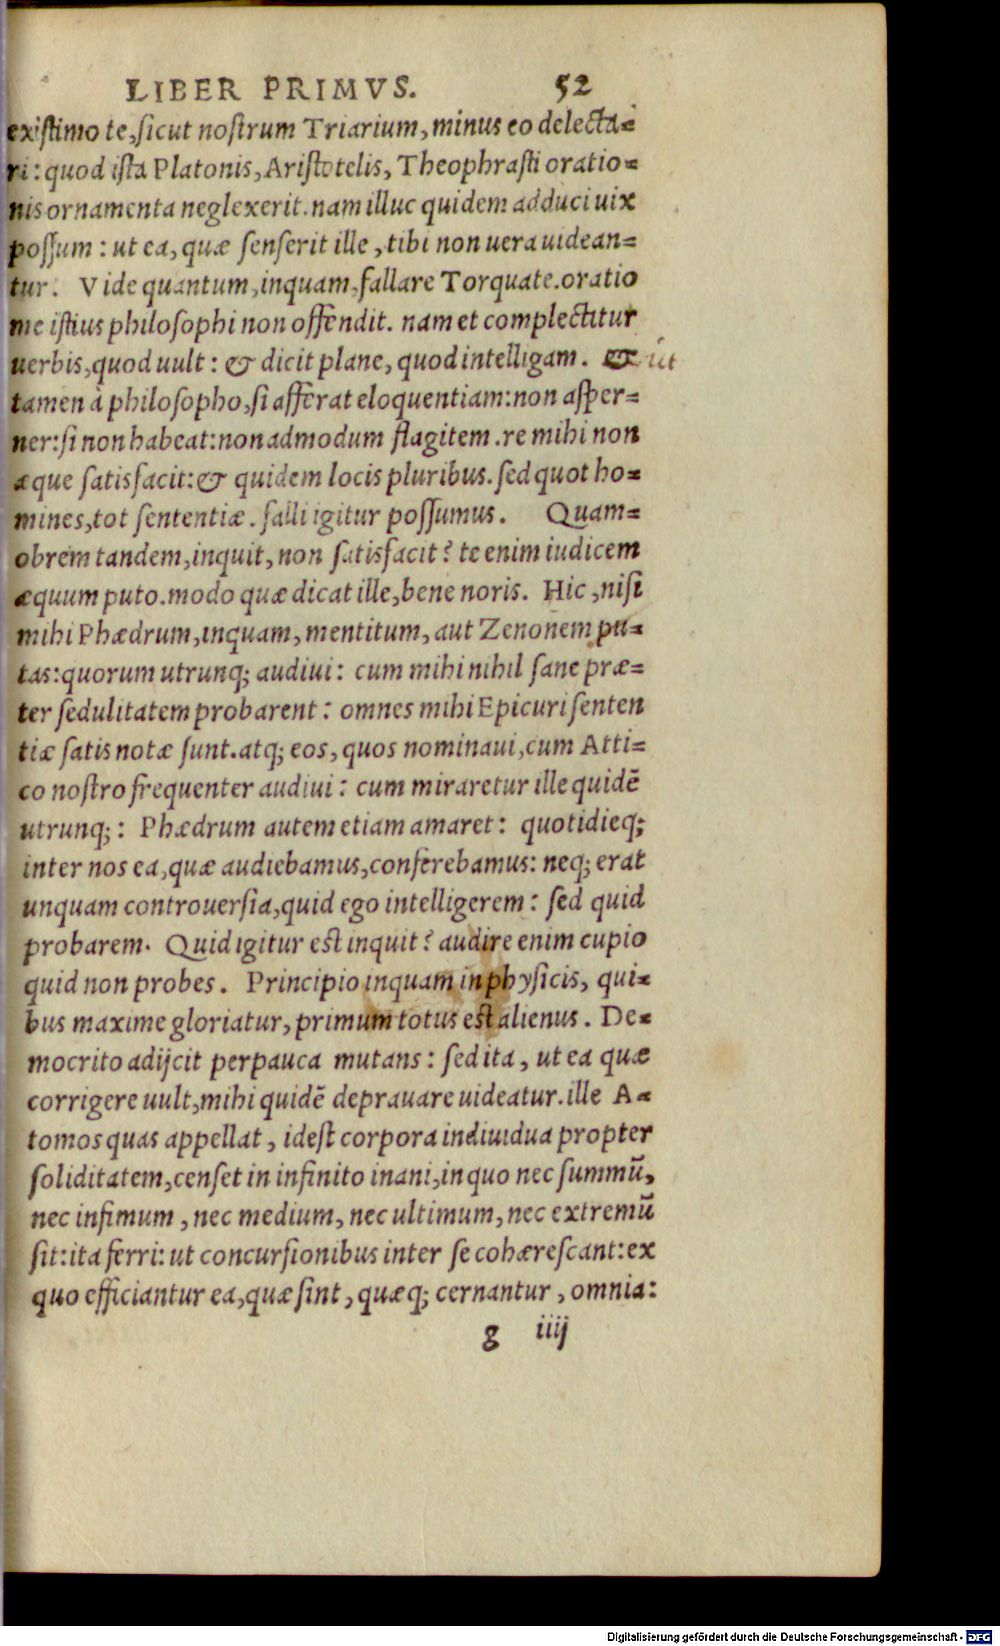 LIBER PRIMVS. 52
existimo te, sicut nostrum Triarium, minus eo delecta=
ri: quod ista Platonis, Aristotelis, Theophrasti oratio=
nis ornamenta neglexerit. nam illuc quidem adduci uix
possum: ut ea, quæ senserit ille, tibi non uera uidean=
tur. Vide quantum, inquam, fallare Torquate. oratio
me istius philosophi non offendit. nam et complectitur
uerbis, quod uult: & dicit plane, quod intelligam. & ut
tamen à philosopho, si afferat eloquentiam: non asper=
ner: si non habeat: non admodum flagitem. re mihi non
æque satisfacit: & quidem locis pluribus. sed quot ho=
mines, tot sententiæ. falli igitur possumus. Quam=
obrem tandem, inquit, non satisfacit? te enim iudicem
æquum puto. modo quæ dicat ille, bene noris. Hic, nisi
mihi Phædrum, inquam, mentitum, aut Zenonem pu=
tas: quorum utrunq; audiui: cum mihi nihil sane præ=
ter sedulitatem probarent: omnes mihi Epicuri senten
tiæ satis notæ sunt. atq; eos, quos nominaui, cum Atti=
co nostro frequenter audiui: cum miraretur ille quidē
utrunq;: Phædrum autem etiam amaret: quotidieq;
inter nos ea, quæ audiebamus, conferebamus: neq; erat
unquam controuersia, quid ego intelligerem: sed quid
probarem. Quid igitur est inquit? audire enim cupio
quid non probes. Principio inquam in physicis, qui=
bus maxime gloriatur, primum totus est alienus. De=
mocrito adijcit perpauca mutans: sed ita, ut ea quæ
corrigere uult, mihi quidē deprauare uideatur. ille A=
tomos quas appellat, idest corpora indiuidua propter
soliditatem, censet in infinito inani, in quo nec summū,
nec infimum, nec medium, nec ultimum, nec extremū
sit: ita ferri: ut concursionibus inter se cohærescant: ex
quo efficiantur ea, quæ sint, quæq; cernantur, omnia:
g iiij
Digitalisierung gefördert durch die Deutsche Forschungsgemeinschaft - DFG